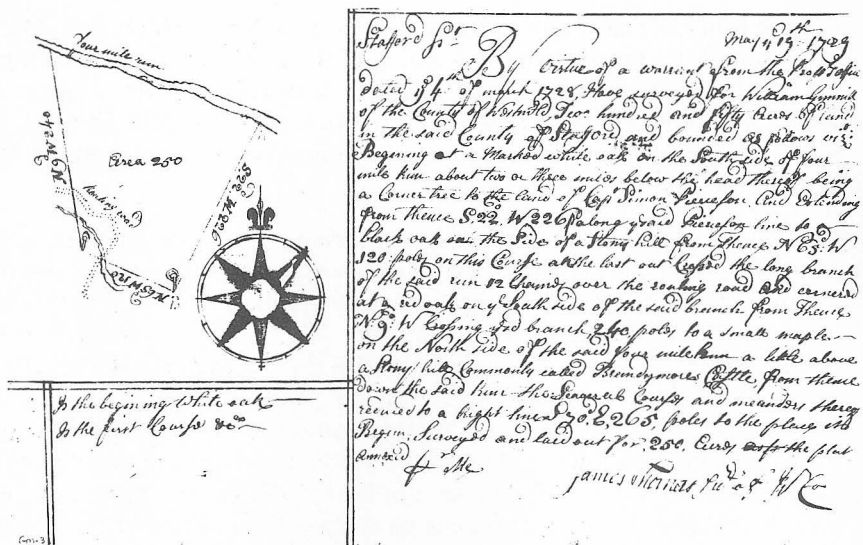 Four mile run
N 9 W 240
Area 250
S 22 W 226
N 65 W 120
Is the begining White oak
Is the first Course &c
Stafford Sst
May y 19th 1729
By Virtue of a warrant from the Prop
dated y 4th of march 1728, Have surveyed for William Gunnell
of the County of Westmld, Two hundred and fifty Acres of Land
in the said County of Stafford and bounded as follows viz
Begining at a Marked white oak on the South side of four
mile Run about two or three miles below the head thereof being
a Corner tree to the land of Capt Simon Pierceson And Extending
from thence S 22 W 226 P along ye said Piersons line to a
black oak on the Side of a Stony hill from thence N 65 W
120 poles on this Course at the last out Crossed the long branch
of the said run 12 Chaines over the roaling road and cornered
at a red oak on ye South side of the said branch from Thence
N 9 W Crossing ye sd branch 240 poles to a small maple
on the North side of the said four mile Run a little above
a Stony hill Commonly called Brandymore Castle, from thence
down the said Run the Several Courses and meanders thereof
reduced to a Bright line S 70 E, 265 poles to the place
Begin. Surveyed and laid out for 250 Acres the plat
annexed
Me
James Thomas